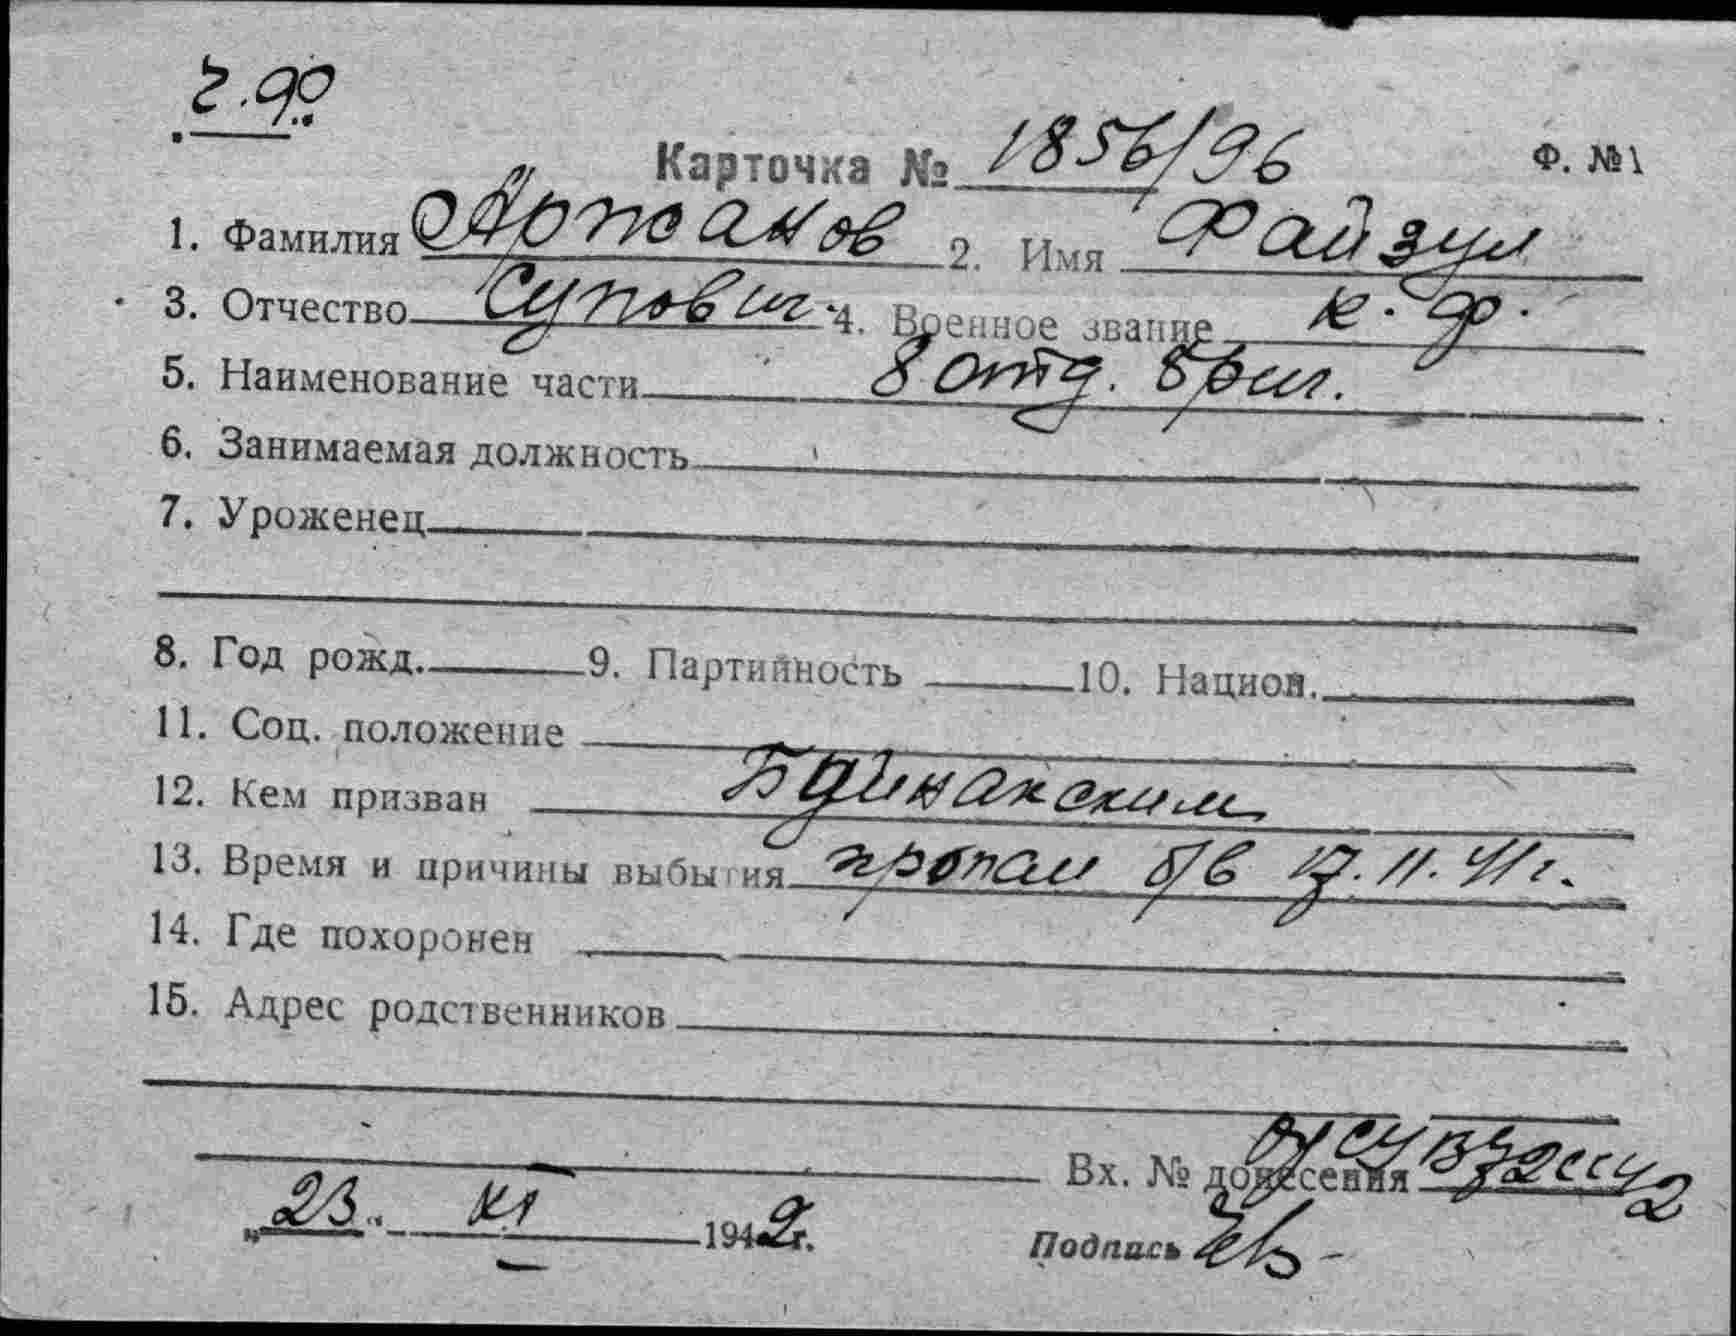 г.ф.
Карточка № 1856/96 Ф. №1
1. Фамилия Аржанов 2. Имя Файзул
3. Отчество Супович 4. Военное звание к.ф.
5. Наименование части 8 отд. бриг.
6. Занимаемая должность
7. Уроженец
8. Год рожд. 9. Партийность 10. Национ.
11. Соц. положение
12. Кем призван
13. Время и причины выбытия пропал б/в 17.11.41г.
14. Где похоронен
15. Адрес родственников
Вх. № донесения
„23" XI 1942г.
Подпись